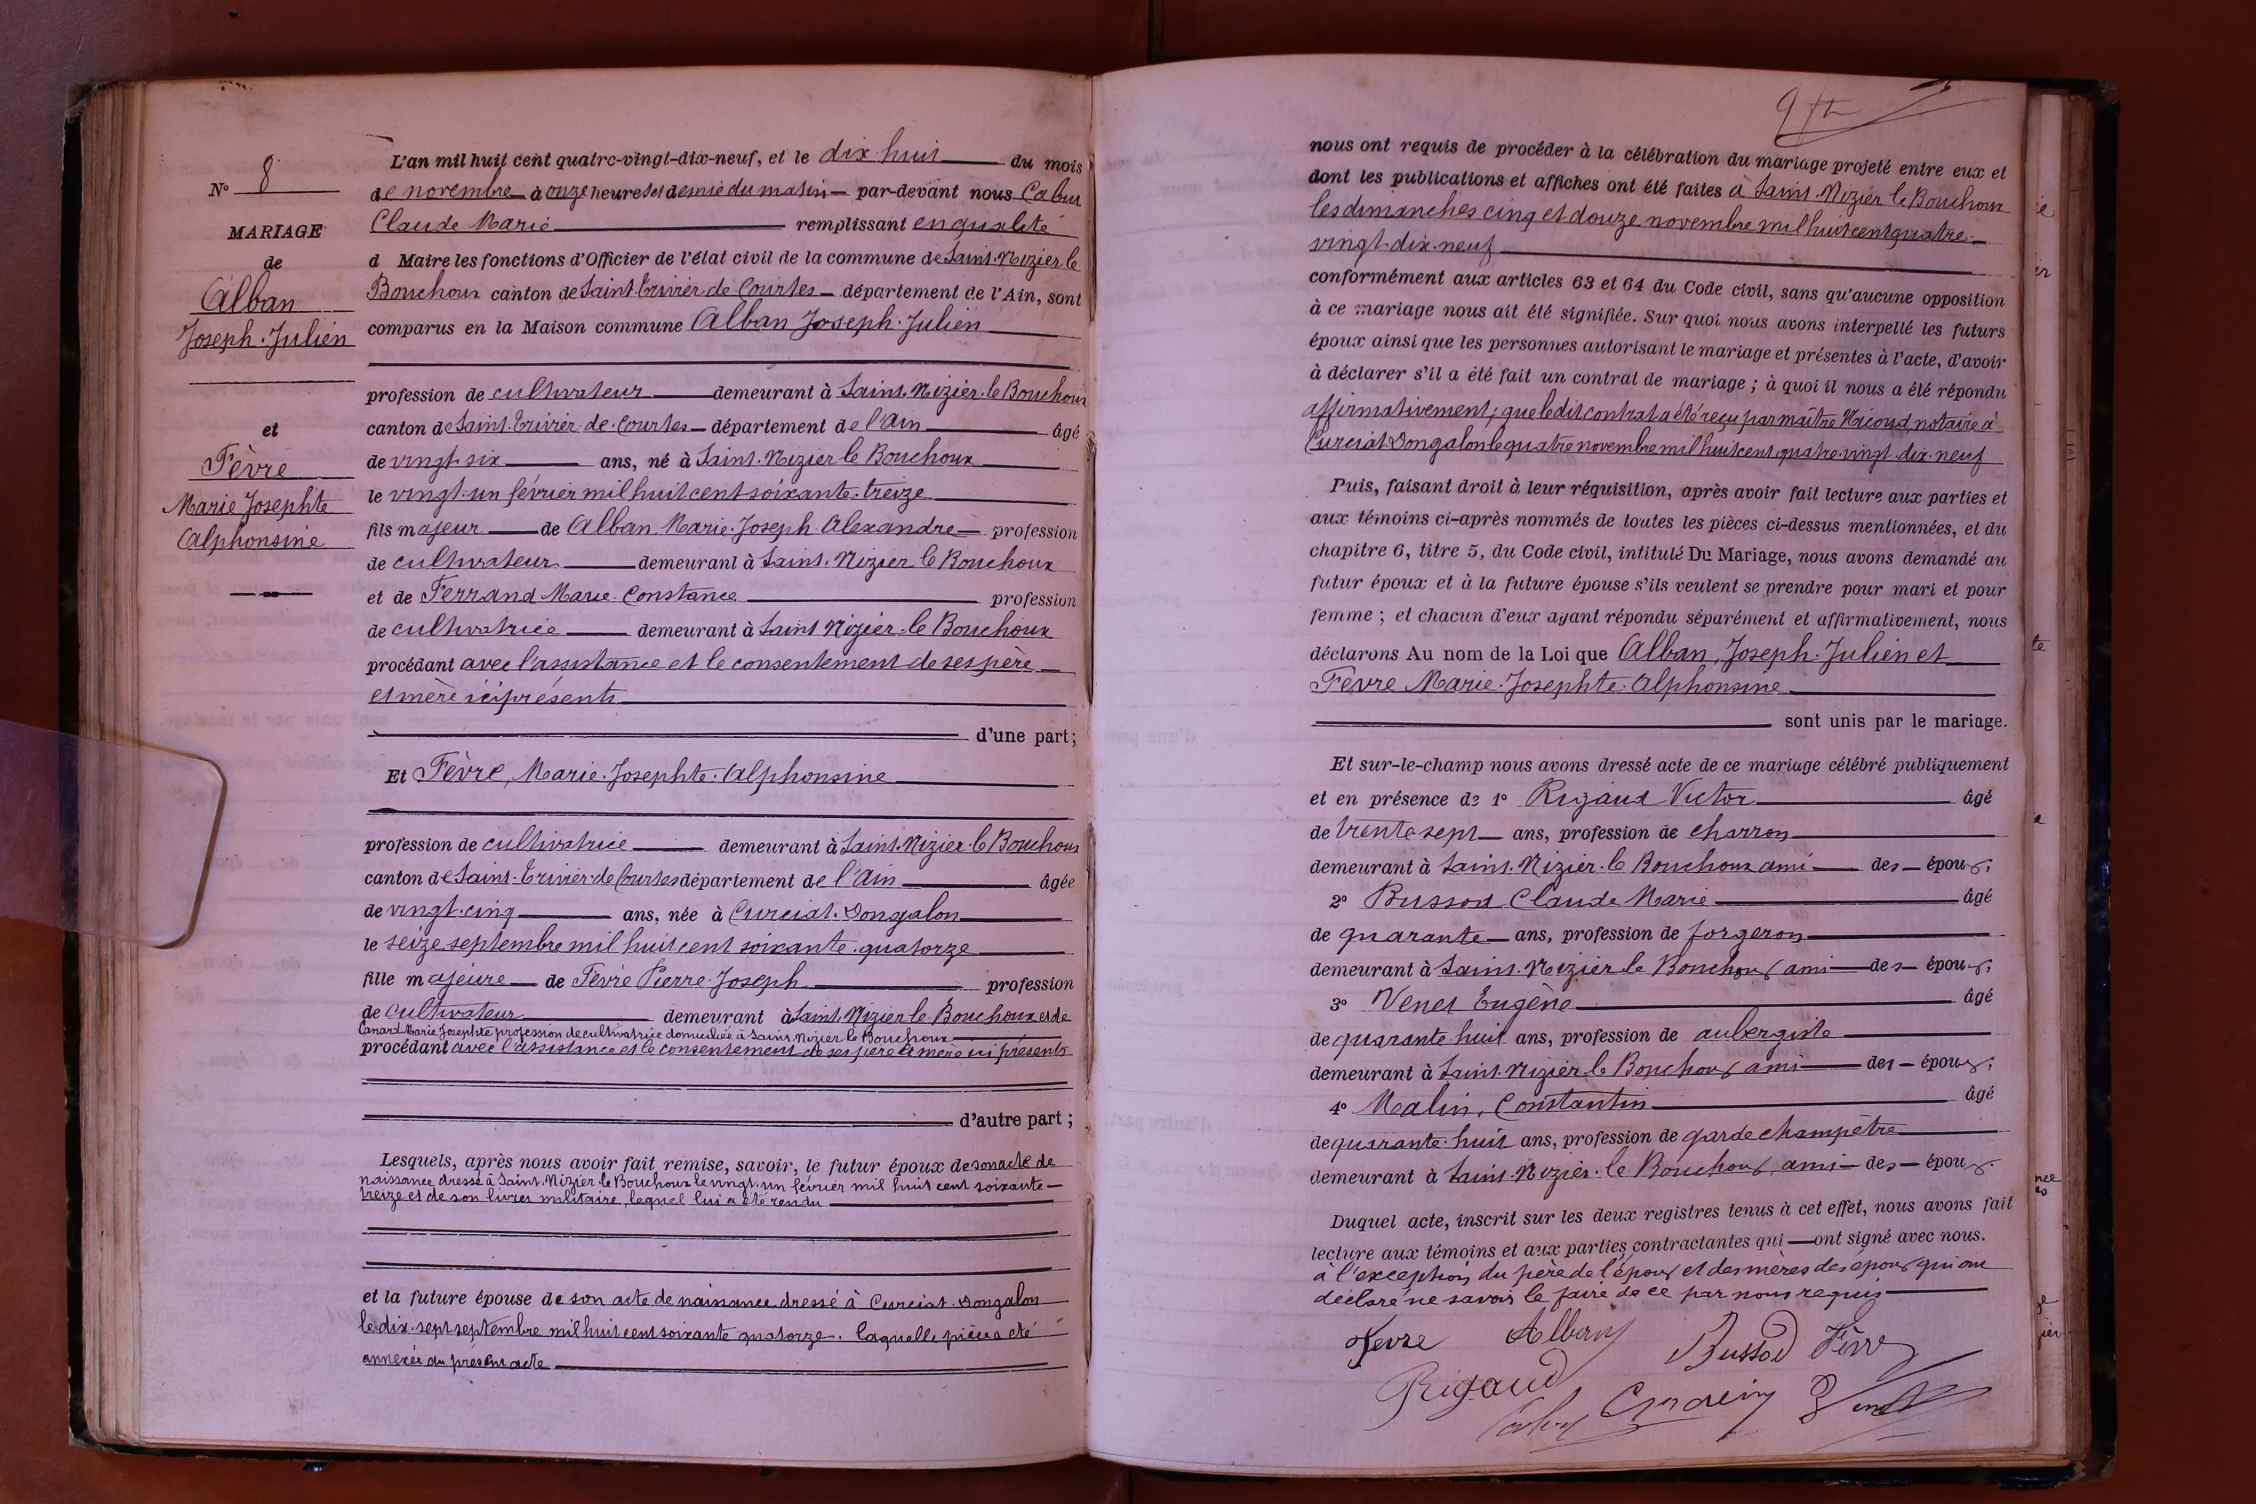 N° 8
MARIAGE
de
Alban
Joseph. Julien
et
Fèvre
Marie Josephte
Alphonsine
L'an mil huit cent quatre-vingt-dix-neuf, et le dix huit du mois
de novembre à onze heures et demie du matin par-devant nous Cabut
Claude Marie remplissant en qualité
d Maire les fonctions d'Officier de l'état civil de la commune de Saint. Nizier le
Bouchoux canton de Saint Trivier de Courtes département de l'Ain, sont
comparus en la Maison commune Alban Joseph. Julien
profession de cultivateur demeurant à Saint. Nizier. le Bouchoux
canton de Saint. Trivier de. Courtes département de l'Ain âgé
de vingt six ans, né à Saint. Nizier le Bouchoux
le vingt. un février mil huit cent soixante. treize
fils majeur de Alban Marie. Joseph Alexandre profession
de cultivateur demeurant à Saint. Nizier le Bouchoux
et de Ferrand Marie. Constance profession
de cultivatrice demeurant à Saint Nizier. le Bouchoux
procédant avec l'assistance et le consentement de ses père
et mère ici présents
d'une part;
Et Fèvre, Marie. Josephte. Alphonsine
profession de cultivatrice demeurant à Saint. Nizier. le Bouchoux
canton de Saint. Trivier. de Courtes département de l'Ain âgée
de vingt. cinq ans, née à Curciat. Dongalon
le seize septembre mil huit cent soixante. quatorze
fille majeure de Fèvre Pierre. Joseph profession
de cultivateur demeurant à Saint. Nizier le Bouchoux et de
Canard Marie Josephte profession de cultivatrice domiciliée à Saint. Nizier le Bouchoux
procédant avec l'assistance et le consentement de ses père et mère ici présents
d'autre part;
Lesquels, après nous avoir fait remise, savoir, le futur époux de son acte de
naissance dressé à Saint. Nizier le Bouchoux le vingt. un février mil huit cent soixante
treize et de son livret militaire, lequel lui a été rendu
et la future épouse de son acte de naissance dressé à Curciat. Dongalon
le dix. sept septembre mil huit cent soixante quatorze. laquelle pièce a été
annexée au présent acte
nous ont requis de procéder à la célébration du mariage projeté entre eux et
dont les publications et affiches ont été faites à Saint. Nizier le Bouchoux
les dimanches cinq et douze novembre mil huit cent quatre
vingt. dix. neuf
conformément aux articles 63 et 64 du Code civil, sans qu'aucune opposition
à ce mariage nous ait été signifiée. Sur quoi nous avons interpellé les futurs
époux ainsi que les personnes autorisant le mariage et présentes à l'acte, d'avoir
à déclarer s'il a été fait un contrat de mariage; à quoi il nous a été répondu
affirmativement; que ledit contrat a été reçu par maître notaire à
Curciat Dongalon le quatre novembre mil huit cent quatre. vingt. dix. neuf
Puis, faisant droit à leur réquisition, après avoir fait lecture aux parties et
aux témoins ci-après nommés de toutes les pièces ci-dessus mentionnées, et du
chapitre 6, titre 5, du Code civil, intitulé Du Mariage, nous avons demandé au
futur époux et à la future épouse s'ils veulent se prendre pour mari et pour
femme; et chacun d'eux ayant répondu séparément et affirmativement, nous
déclarons Au nom de la Loi que Alban, Joseph. Julien et
Fèvre Marie. Josephte. Alphonsine
sont unis par le mariage.
Et sur-le-champ nous avons dressé acte de ce mariage célébré publiquement
et en présence de 1° Rigaud Victor âgé
de trente sept ans, profession de charron
demeurant à Saint. Nizier. le Bouchoux ami des époux;
2° Bussod Claude Marie âgé
de quarante ans, profession de forgeron
demeurant à Saint. Nizier le Bouchoux ami des époux;
3° Venet Eugène âgé
de quarante huit ans, profession de aubergiste
demeurant à Saint. Nizier le Bouchoux ami des époux;
4° Malin, Constantin âgé
de quarante. huit ans, profession de garde champêtre
demeurant à Saint. Nizier. le Bouchoux, ami des époux.
Duquel acte, inscrit sur les deux registres tenus à cet effet, nous avons fait
lecture aux témoins et aux parties contractantes qui ont signé avec nous.
à l'exception du père de l'époux et des mères des époux qui ont
déclaré ne savoir le faire de ce par nous requis
Fevre Alban Bussod Fèvre
Rigaud